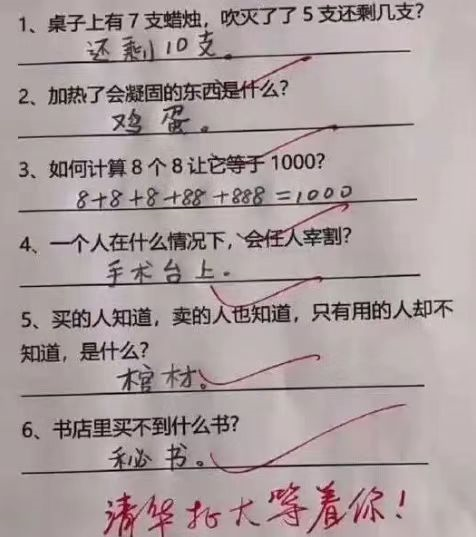 1、桌子上有7支蜡烛，吹灭了了5支还剩几支？
还剩10支。
2、加热了会凝固的东西是什么？
鸡蛋。
3、如何计算8个8让它等于1000？
8+8+8+88+888=1000
4、一个人在什么情况下，会任人宰割？
手术台上.
5、买的人知道，卖的人也知道，只有用的人却不
知道，是什么？
棺材。
6、书店里买不到什么书？
秘书。
清华北大等着你！